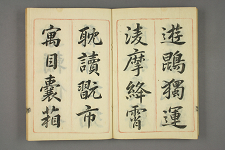 遊鵾獨運
淩摩絳霄
耽讀翫市
寓目囊箱